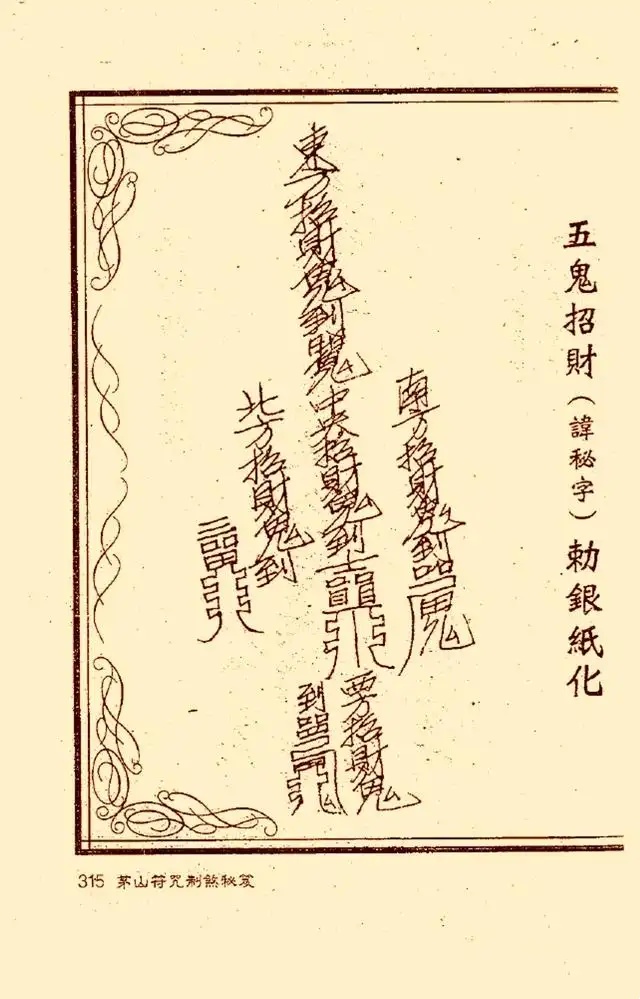 五鬼招財（諱秘字）勅銀紙化
東方招財鬼到
南方招財鬼到
中央招財鬼到
北方招財鬼到
西方招財鬼
到
315 茅山符咒制煞秘笈